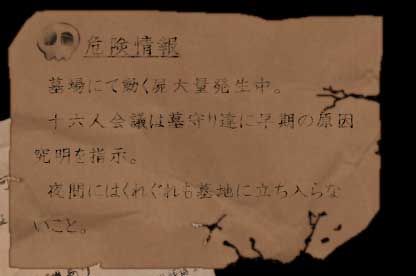 危険情報
墓場にて動く屍大量発生中。
十六人会議は墓守り達に早期の原因
究明を指示。
夜間にはくれぐれも墓地に立ち入らな
いこと。